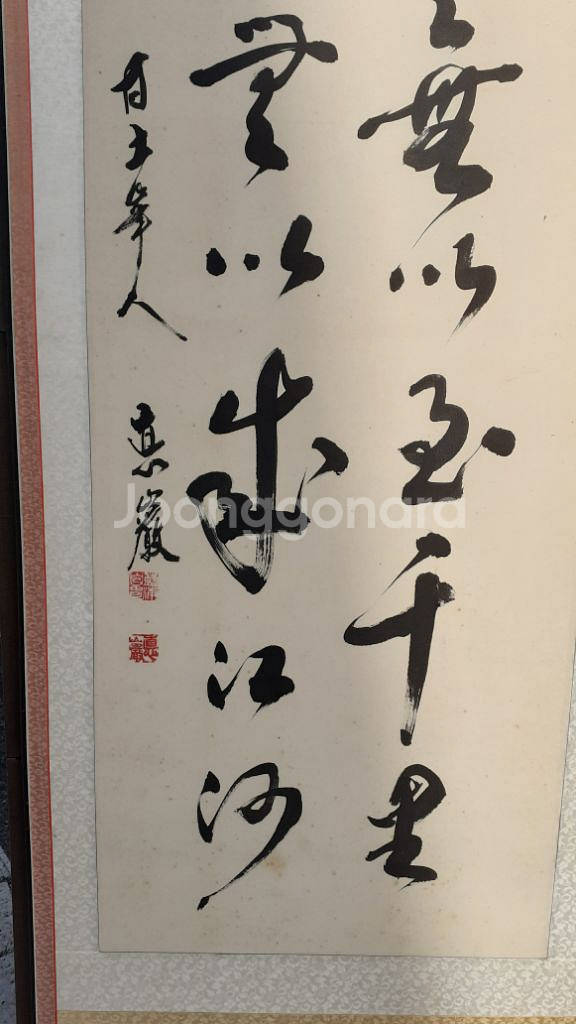 無以至千里
無以成江河
甘土峯人
惠巖
Joonggonara